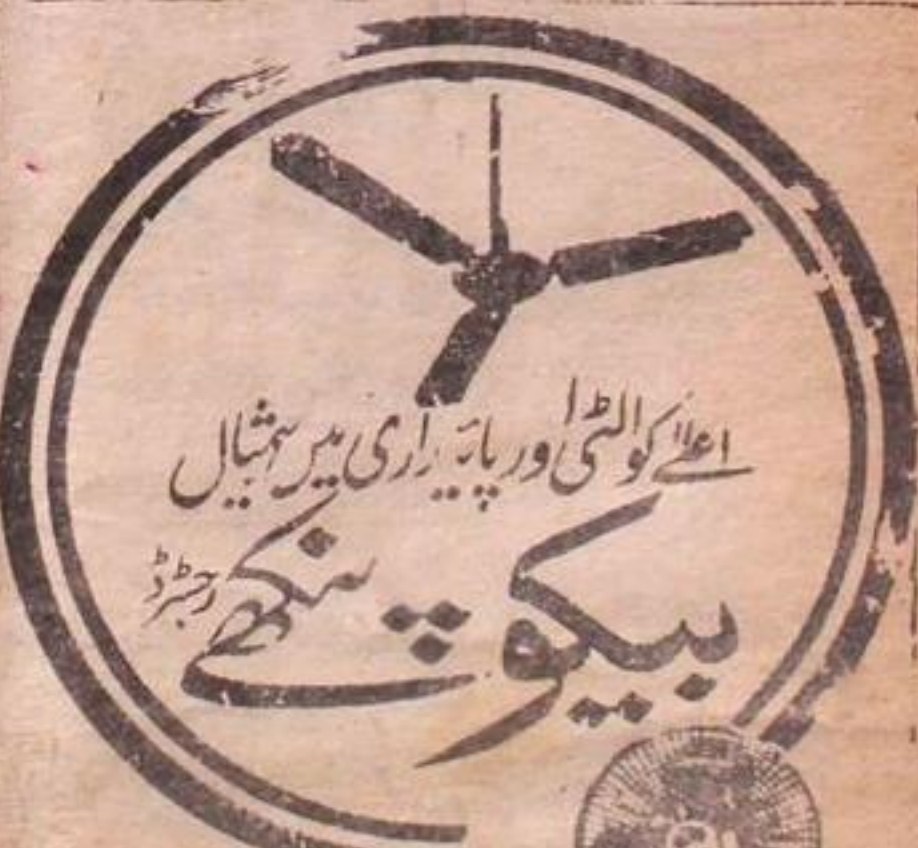 اعلےٰ کوالٹی اور پائیداری میں بیمثال
بیکو پنکھے
رجسٹرڈ